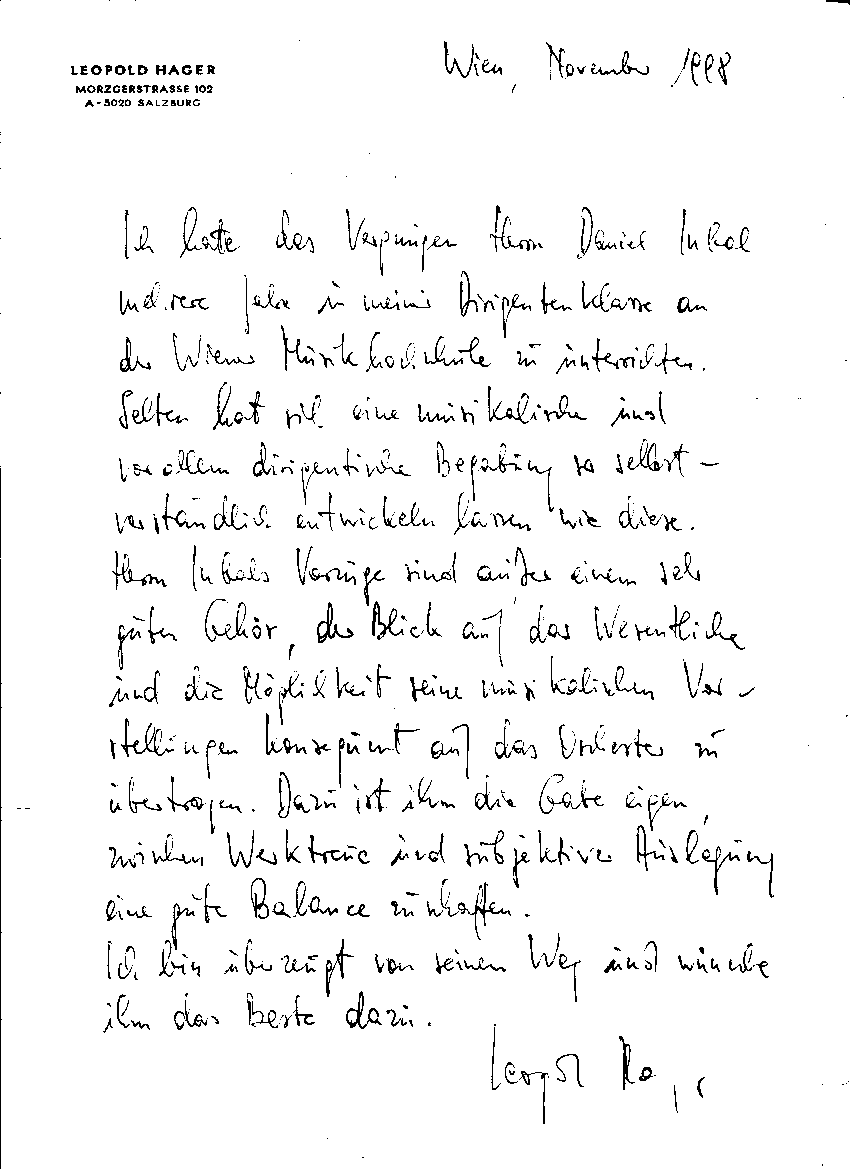 LEOPOLD HAGER
MORZGERSTRASSE 102
A-5020 SALZBURG
Wien, November 1998
Ich hatte das Vergnügen Herrn Daniel Inbal
mehrere Jahre in meiner Dirigentenklasse an
der Wiener Musikhochschule zu unterrichten.
Selten hat sich eine musikalische und
vor allem dirigentische Begabung so selbst-
verständlich entwickeln lassen wie diese.
Herrn Inbals Vorzüge sind außer einem sehr
guten Gehör, der Blick auf das Wesentliche
und die Möglichkeit seine musikalischen Vor-
stellungen konsequent auf das Orchester zu
übertragen. Dazu ist ihm die Gabe eigen,
zwischen Werktreue und subjektiver Auslegung
eine gute Balance zu schaffen.
Ich bin überzeugt von seinem Weg und wünsche
ihm das Beste dazu.
Leopold Hager